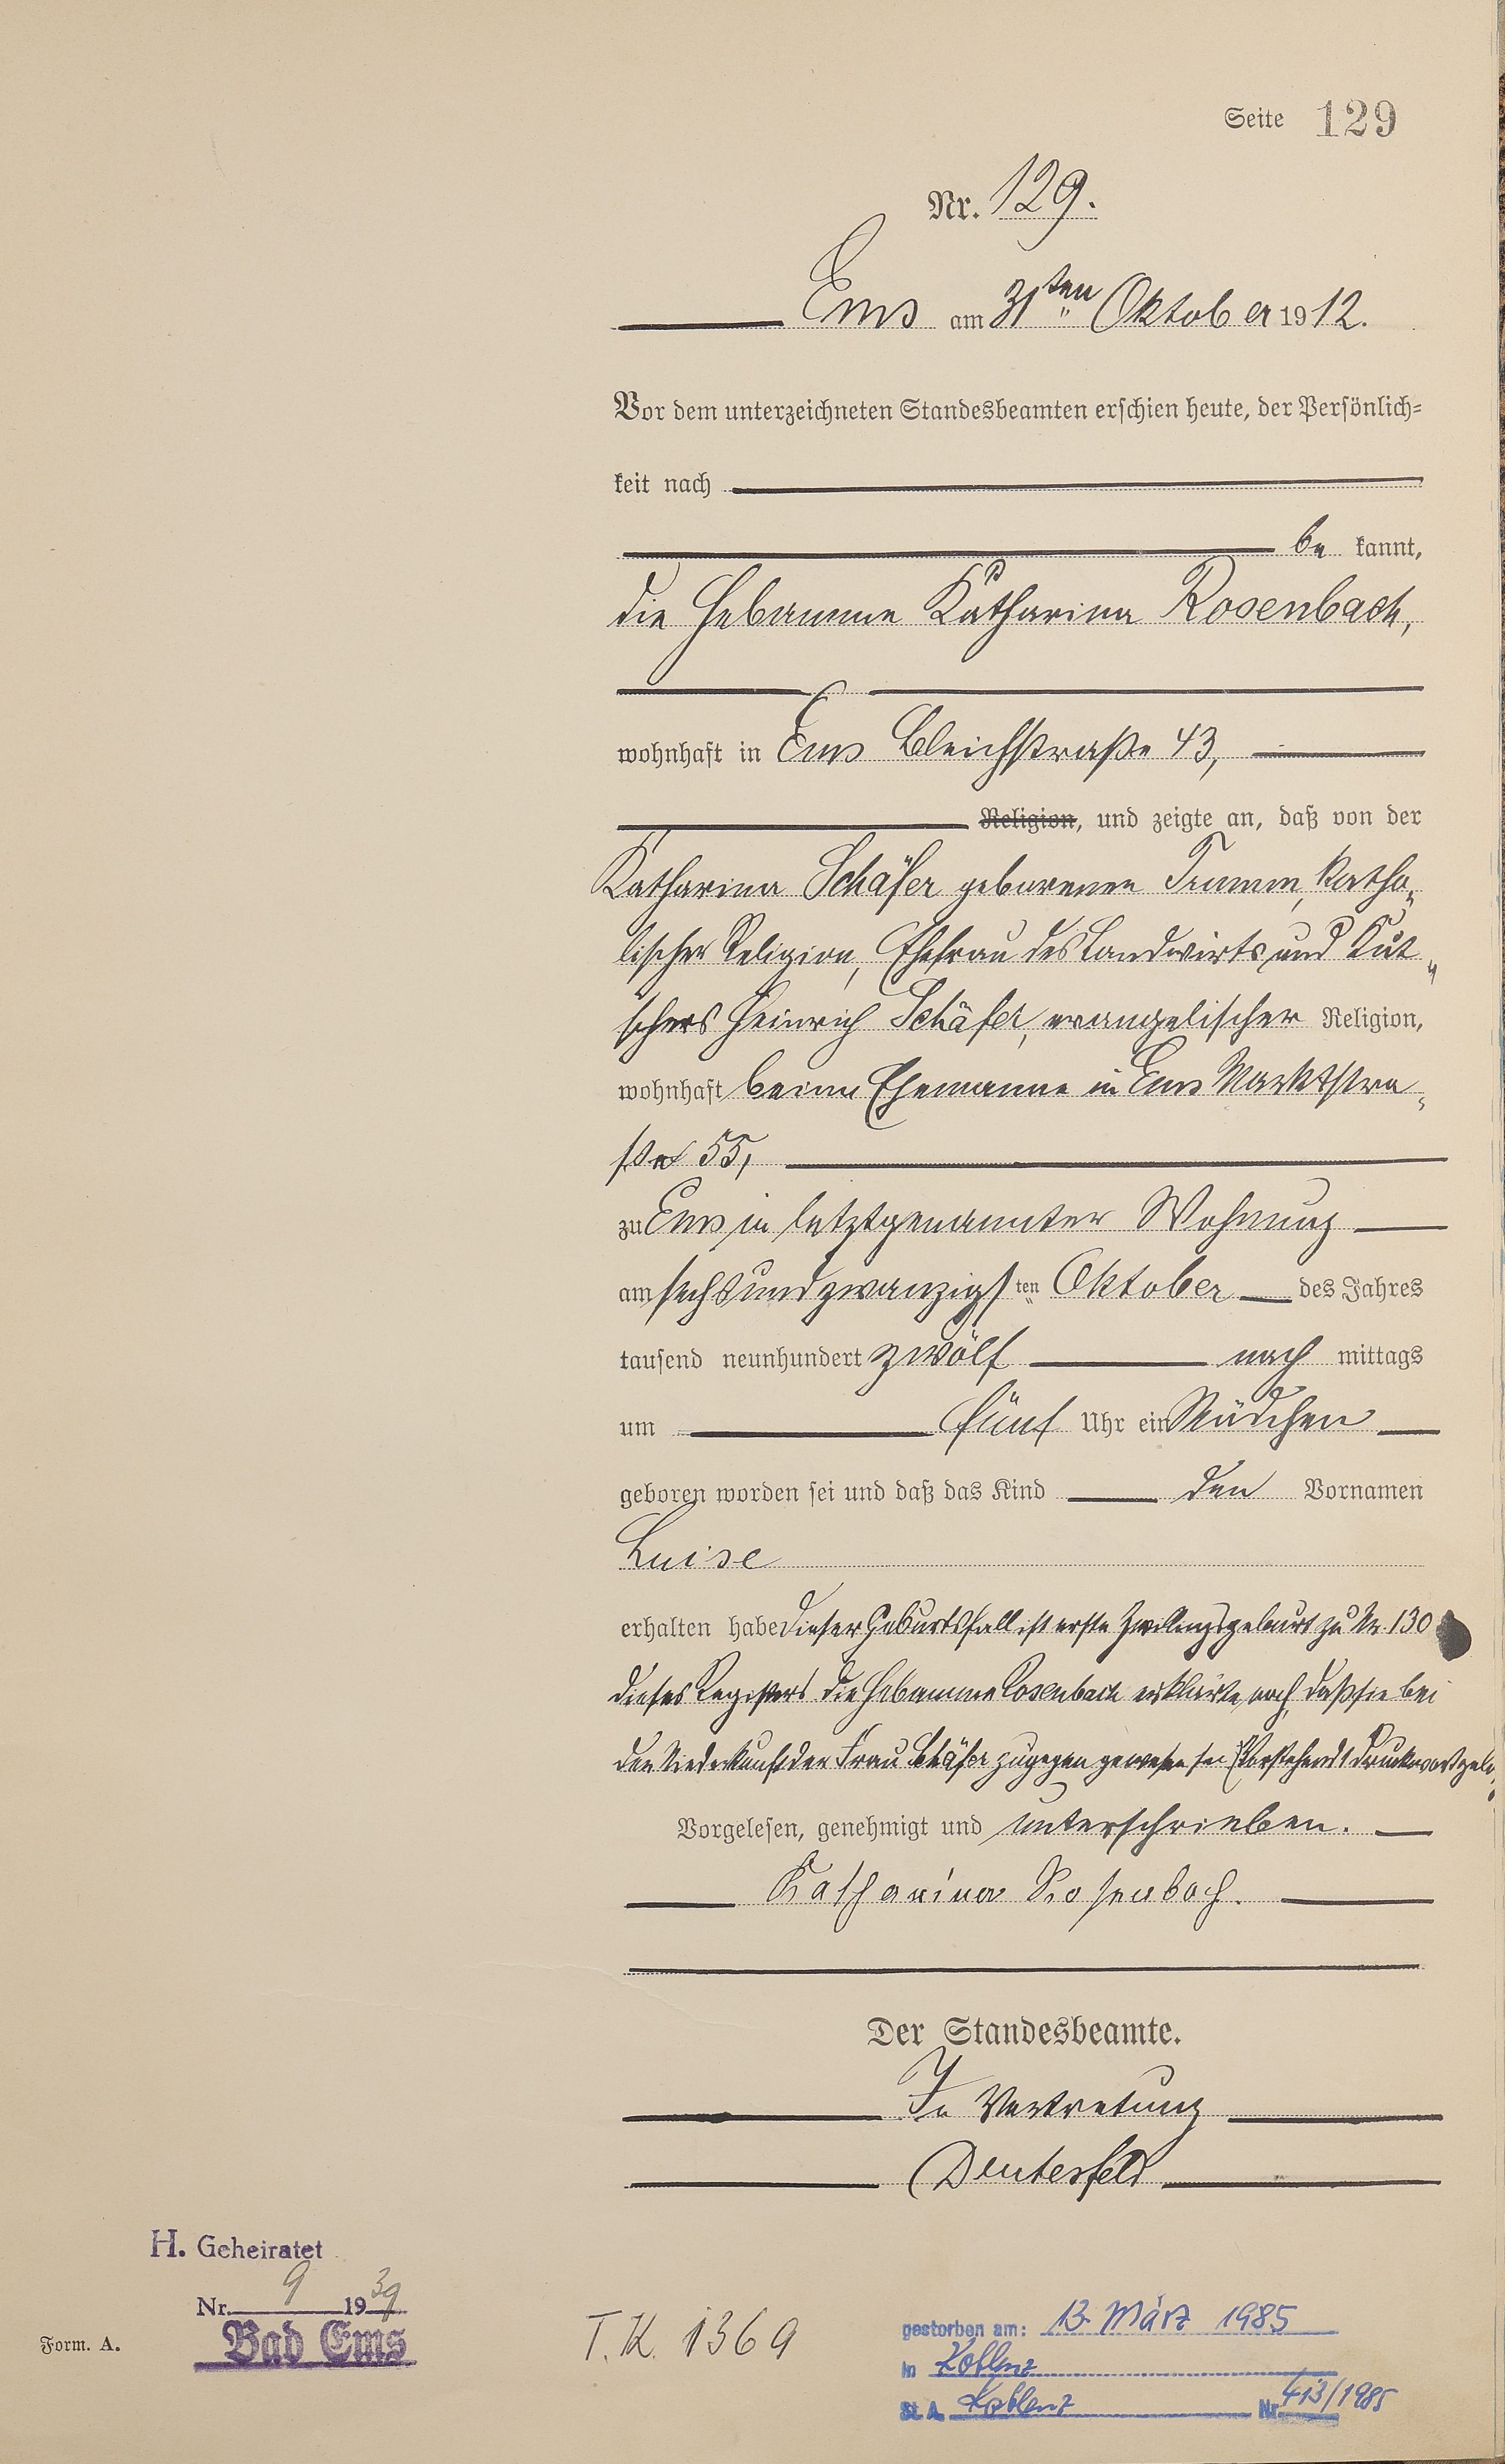 Seite 129
Nr. 129.
Ems am 31ten Oktober 1912.
Vor dem unterzeichneten Standesbeamten erschien heute, der Persönlich=
keit nach
be kannt,
die Hebamme Katharina Rosenbach,
wohnhaft in Ems Bleichstraße 43,
Religion, und zeigte an, daß von der
Katharina Schäfer geborenen Trumm, katho-
lischer Religion, Ehefrau des Landwirts und Kut-
schers Heinrich Schäfer, evangelischer Religion,
wohnhaft beim Ehemanne in Ems Marktstra-
ße 55,
zu Ems in letztgenannter Wohnung
am sechsundzwanzigsten Oktober des Jahres
tausend neunhundert zwölf nach mittags
um fünf Uhr ein Mädchen
geboren worden sei und daß das Kind den Vornamen
Luise
erhalten habe Dieser Geburtsfall ist erste Zwillingsgeburt zu Nr. 130
dieses Registers die Hebamme Rosenbach erklärte noch, daß sie bei
der Niederkunft der Frau Schäfer zugegen gewesen sei (Vorstehend 1 Druckwort
Vorgelesen, genehmigt und unterschrieben.
Katharina Rosenbach.
Der Standesbeamte.
In Vertretung
Deutesfeld
H. Geheiratet
Nr. 9 1939
Bad Ems
Form. A.
T.K. 1369
gestorben am: 13. März 1985
in Koblenz
St. A. Koblenz Nr. 413/1985